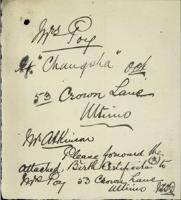 Mrs Poy
of "Changsha"
53 Crown Lane
Ultimo
Mr Atkinson
Please forward the
attached Birth Certificate to
Mrs Poy 53 Crown Lane
Ultimo